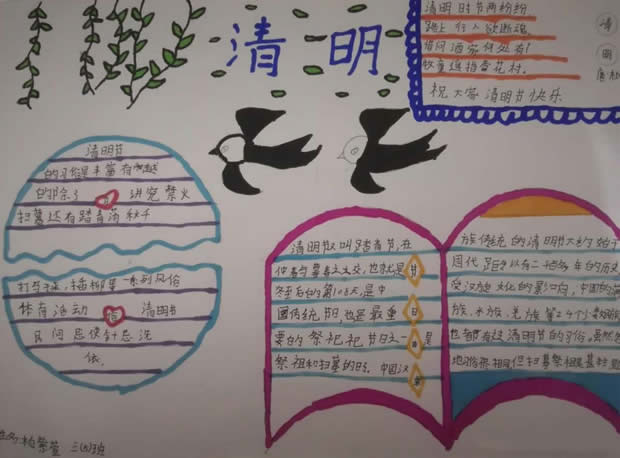 清明
清明时节两纷纷
路上行人欲断魂,
借问酒家何处有!
牧童遥指杏花村。
祝大家清明节快乐
清
明
清明节
的习俗是丰富有
的除了 讲究禁火
扫墓还有踏青荡秋千
打 球,插柳 一系列风俗
体育活动 清明节
民间忌使针忌洗
衣.
清明节又叫踏青节,在
仲春与暮春之交,也就是 节
冬至后的第108天,是中
国传统节日,也是最重 日
要的祭祀祀节日之一 是
祭祖和扫墓的日.中国汉
族传统的清明节大约始于
周代 距今以有二千 多年的历史
受汉族文化的影响,中国的满
族、 族、 族 24个少数民族
也都有过清明节的习俗。虽然各
地习俗 相同,但扫墓祭祖是基
三(5)班